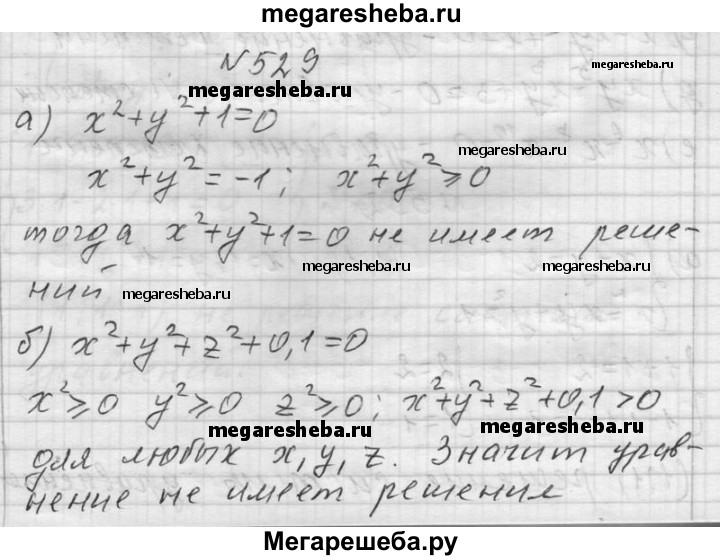 megaresheba.ru
№529
megaresheba.ru
megaresheba.ru
а) x²+y²+1=0
megaresheba.ru
x²+y²=-1; x²+y²⩾0
тогда x²+y²+1=0 не имеет реше-
megaresheba.ru megaresheba.ru
ний megaresheba.ru
б) x²+y²+z²+0,1=0
x²⩾0 y²⩾0 z²⩾0; x²+y²+z²+0,1>0
megaresheba.ru megaresheba.ru
для любых x, y, z. Значит урав-
нение не имеет решения
Мегарешеба.ру